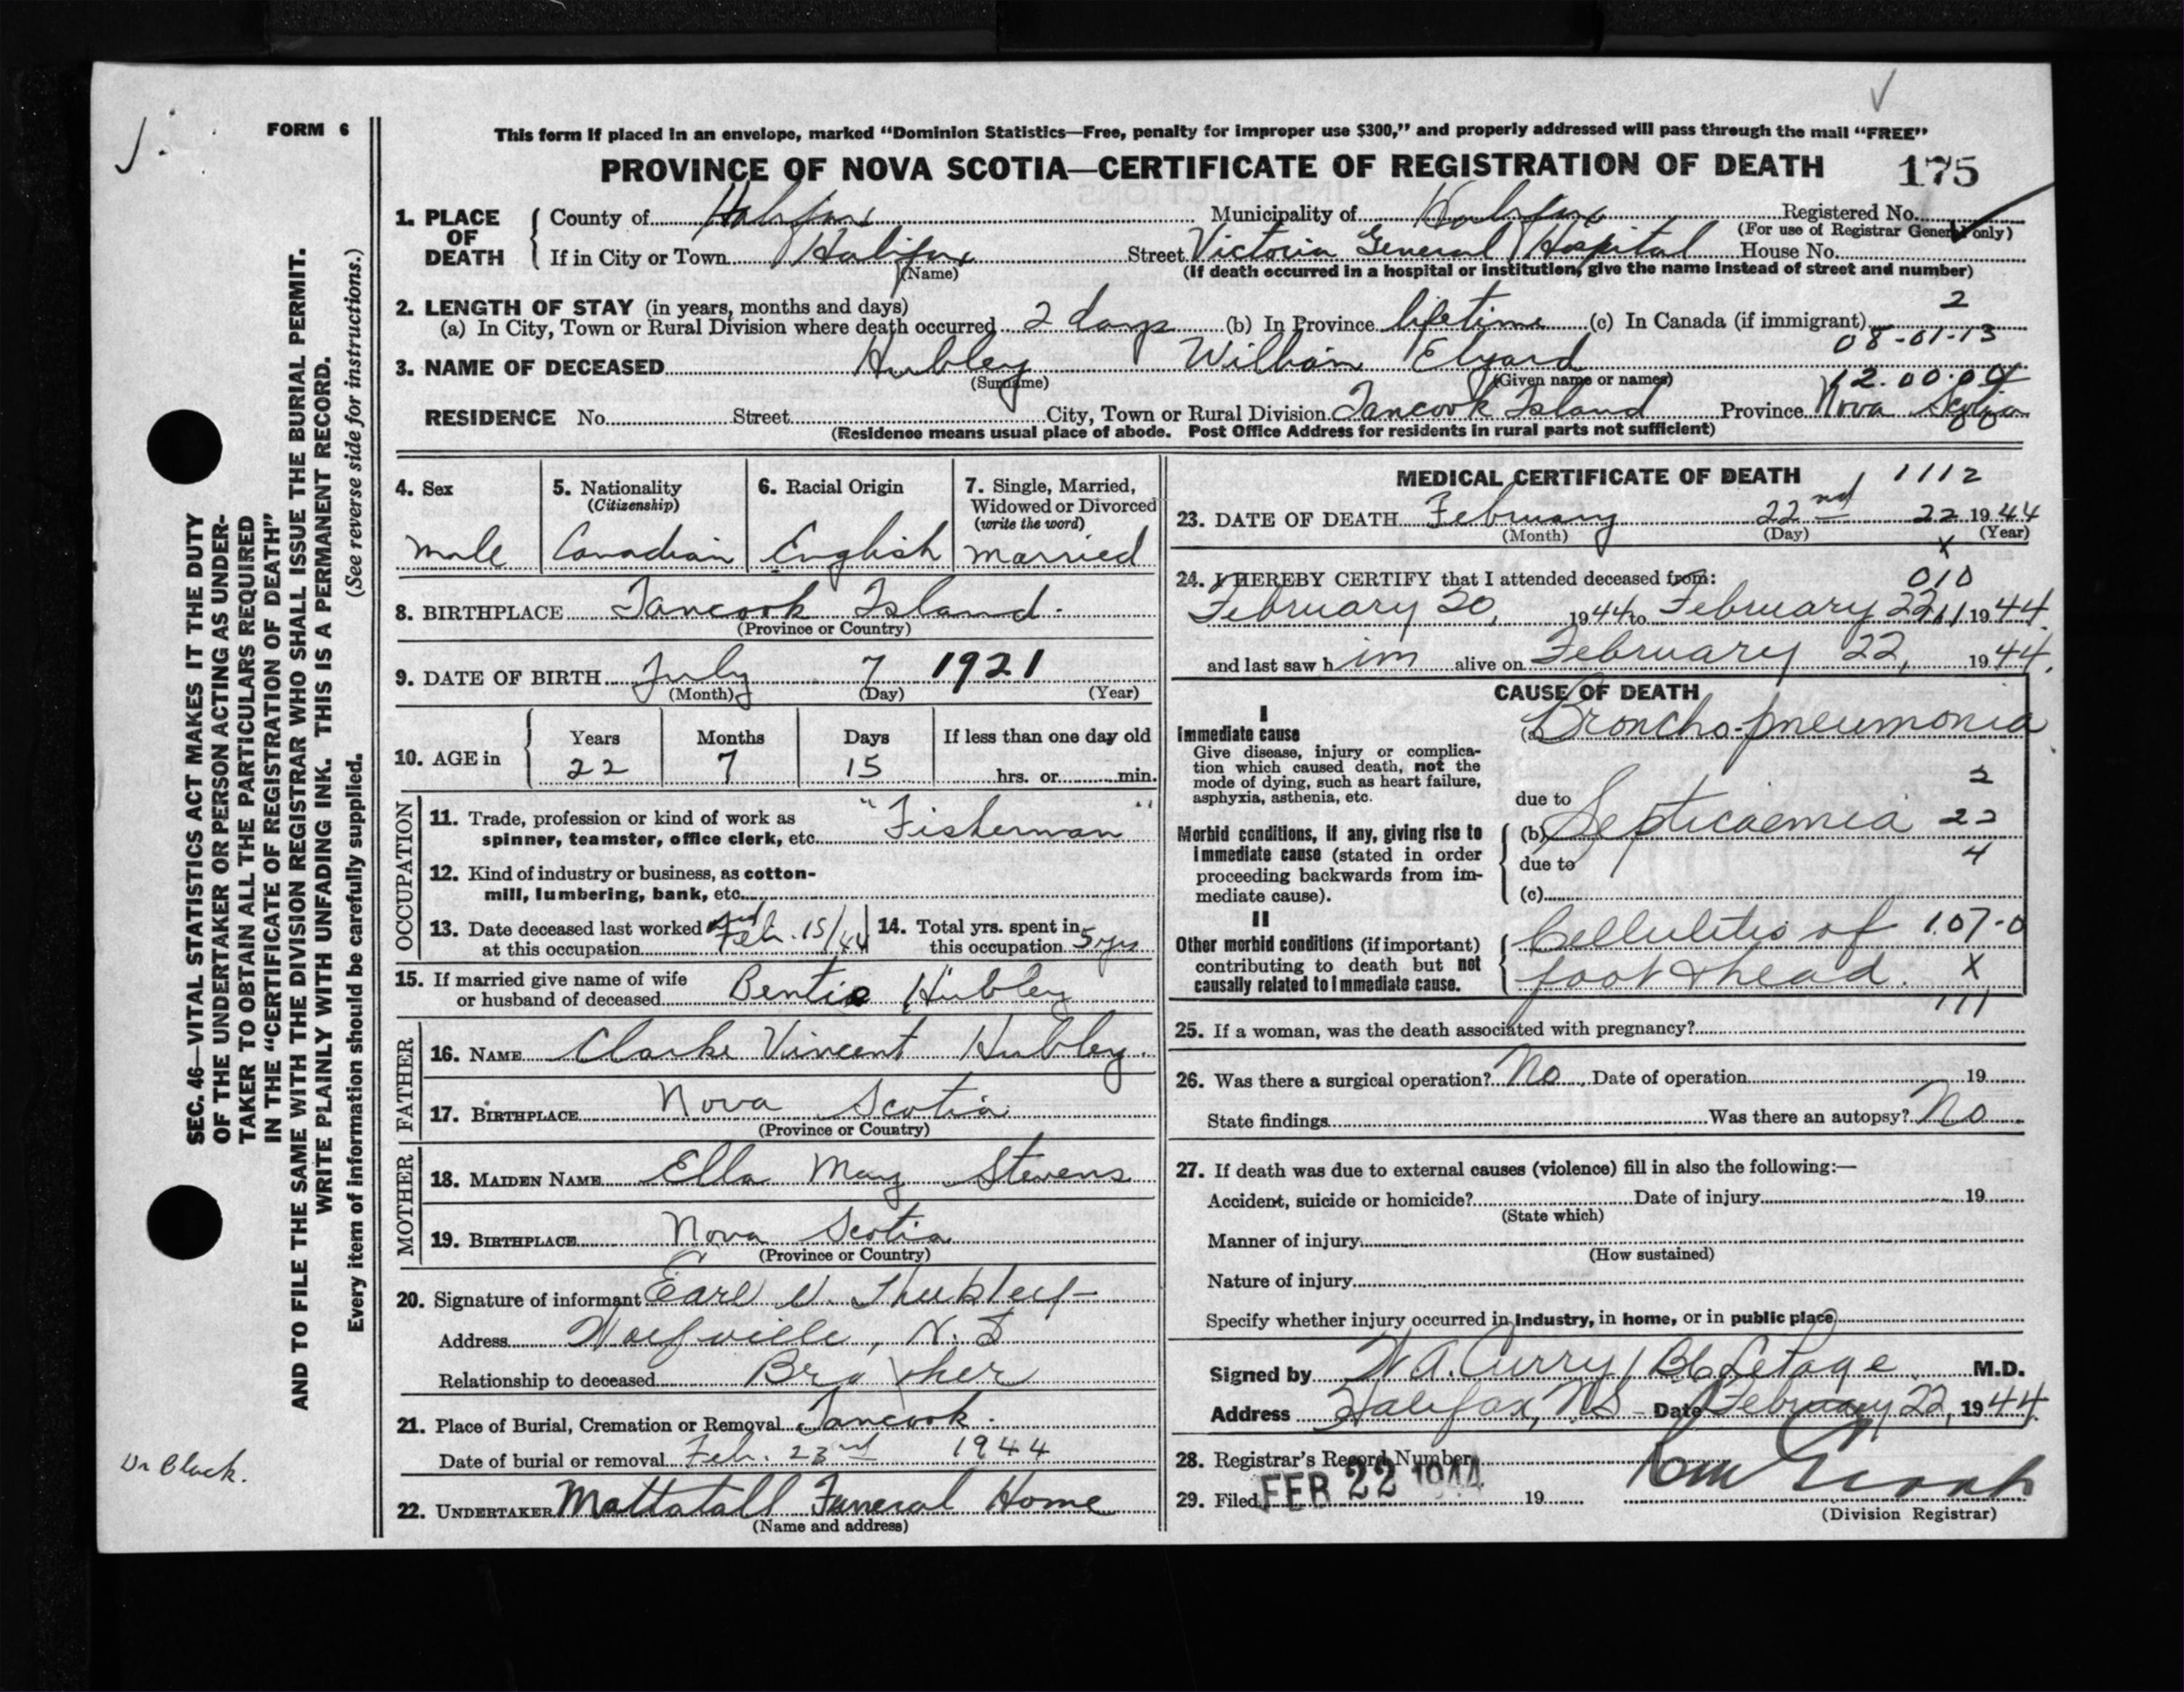 FORM 6
This form if placed in an envelope, marked “Dominion Statistics—Free, penalty for improper use $300,” and properly addressed will pass through the mail “FREE”
PROVINCE OF NOVA SCOTIA—CERTIFICATE OF REGISTRATION OF DEATH 175
1. PLACE OF DEATH
County of Halifax Municipality of Halifax Registered No.
(For use of Registrar General only)
If in City or Town Halifax Street Victoria General Hospital House No.
(Name) (If death occurred in a hospital or institution, give the name instead of street and number)
2. LENGTH OF STAY (in years, months and days) 2
(a) In City, Town or Rural Division where death occurred 2 days (b) In Province lifetime (c) In Canada (if immigrant)
08-01-13
3. NAME OF DECEASED Hubley William Elyard
(Surname) (Given name or names) 12.00.04
RESIDENCE No. Street City, Town or Rural Division Tancook Island Province Nova Scotia
(Residence means usual place of abode. Post Office Address for residents in rural parts not sufficient)
4. Sex
male
5. Nationality
(Citizenship)
Canadian
6. Racial Origin
English
7. Single, Married,
Widowed or Divorced
(write the word)
married
8. BIRTHPLACE Tancook Island
(Province or Country)
9. DATE OF BIRTH July 7 1921
(Month) (Day) (Year)
10. AGE in
Years Months Days If less than one day old
22 7 15 hrs. or min.
OCCUPATION
11. Trade, profession or kind of work as
spinner, teamster, office clerk, etc. "Fisherman"
12. Kind of industry or business, as cotton-
mill, lumbering, bank, etc.
13. Date deceased last worked
at this occupation Feb. 15/44
14. Total yrs. spent in
this occupation 5 yrs
15. If married give name of wife
or husband of deceased Bentie Hubley
FATHER
16. NAME Clarke Vincent Hubley
17. BIRTHPLACE Nova Scotia
(Province or Country)
MOTHER
18. MAIDEN NAME Ella May Stevens
19. BIRTHPLACE Nova Scotia
(Province or Country)
20. Signature of informant Earl V. Hubley
Address Wolfville, N.S
Relationship to deceased Brother
21. Place of Burial, Cremation or Removal Tancook
Date of burial or removal Feb. 23rd 1944
22. UNDERTAKER Mattatall Funeral Home
(Name and address)
MEDICAL CERTIFICATE OF DEATH 1112
23. DATE OF DEATH February 22nd 22 1944
(Month) (Day) (Year)
X
24. I HEREBY CERTIFY that I attended deceased from: 010
February 20, 1944 to February 22 11 1944.
and last saw h im alive on February 22, 1944.
CAUSE OF DEATH
I
Immediate cause
Give disease, injury or complica-
tion which caused death, not the
mode of dying, such as heart failure,
asphyxia, asthenia, etc.
(a) Broncho-pneumonia
2
due to
Morbid conditions, if any, giving rise to
immediate cause (stated in order
proceeding backwards from im-
mediate cause).
(b) Septicaemia 22
due to 4
(c)
II
Other morbid conditions (if important)
contributing to death but not
causally related to immediate cause.
Cellulitis of 107-0
foot & head. X
111
25. If a woman, was the death associated with pregnancy?
26. Was there a surgical operation? No Date of operation 19
State findings Was there an autopsy? No
27. If death was due to external causes (violence) fill in also the following:—
Accident, suicide or homicide? Date of injury 19
(State which)
Manner of injury
(How sustained)
Nature of injury
Specify whether injury occurred in industry, in home, or in public place
Signed by W.A. Curry / B.C. LePage M.D.
Address Halifax, N.S Date February 22, 1944
28. Registrar's Record Number
29. Filed FEB 22 1944 19
(Division Registrar)
SEC. 46—VITAL STATISTICS ACT MAKES IT THE DUTY
OF THE UNDERTAKER OR PERSON ACTING AS UNDER-
TAKER TO OBTAIN ALL THE PARTICULARS REQUIRED
IN THE “CERTIFICATE OF REGISTRATION OF DEATH”
AND TO FILE THE SAME WITH THE DIVISION REGISTRAR WHO SHALL ISSUE THE BURIAL PERMIT.
WRITE PLAINLY WITH UNFADING INK. THIS IS A PERMANENT RECORD.
Every item of information should be carefully supplied. (See reverse side for instructions.)
Dr Black.